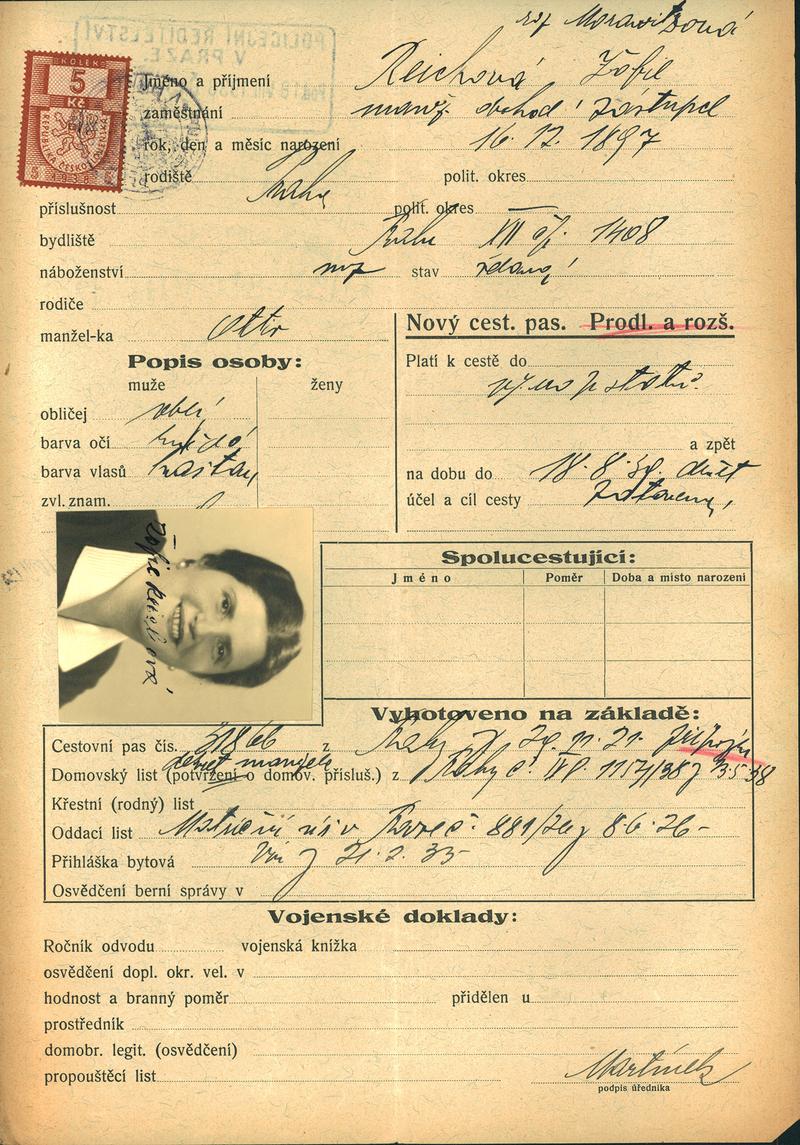 roz. Morawitzová
POLICEJNÍ ŘEDITELSTVÍ
V PRAZE
KOLEK
5
Kč
REPUBLIKA ČESKOSLOVENSKÁ
5 1938 5
Jméno a příjmení Reichová Žofie
zaměstnání manž. obchod. zástupce
rok, den a měsíc narození 16. 12. 1897
rodiště Praha polit. okres
příslušnost polit. okres —
bydliště Praha XII čp. 1408
náboženství stav vdaná
rodiče
manžel-ka Otto
Nový cest. pas. Prodl. a rozš.
Popis osoby:
muže ženy
Platí k cestě do
obličej oblý
barva očí
barva vlasů kaštan
zvl. znam.
a zpět
na dobu do 18. 8. 39.
účel a cíl cesty Zotavená
Žofie Reichová
Spolucestující:
Jméno Poměr Doba a místo narození
Vyhotoveno na základě:
Cestovní pas čís. 31866 z Prahy z
Domovský list (potvrzení o domov. přísluš.) z Prahy č. IVb. 1157/38 z 13.5.38
Křestní (rodný) list
Oddací list 881/26 z 8.6.26-
Přihláška bytová z 21. 2. 35-
Osvědčení berní správy v
Vojenské doklady:
Ročník odvodu vojenská knížka
osvědčení dopl. okr. vel. v
hodnost a branný poměr přidělen u
prostředník
domobr. legit. (osvědčení)
propouštěcí list
Martínek
podpis úředníka